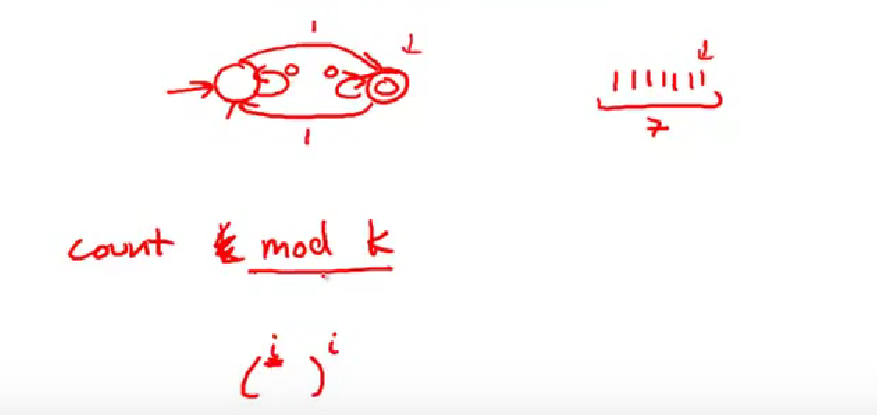 1
0 0
1
1111111
7
count mod k
(i )i